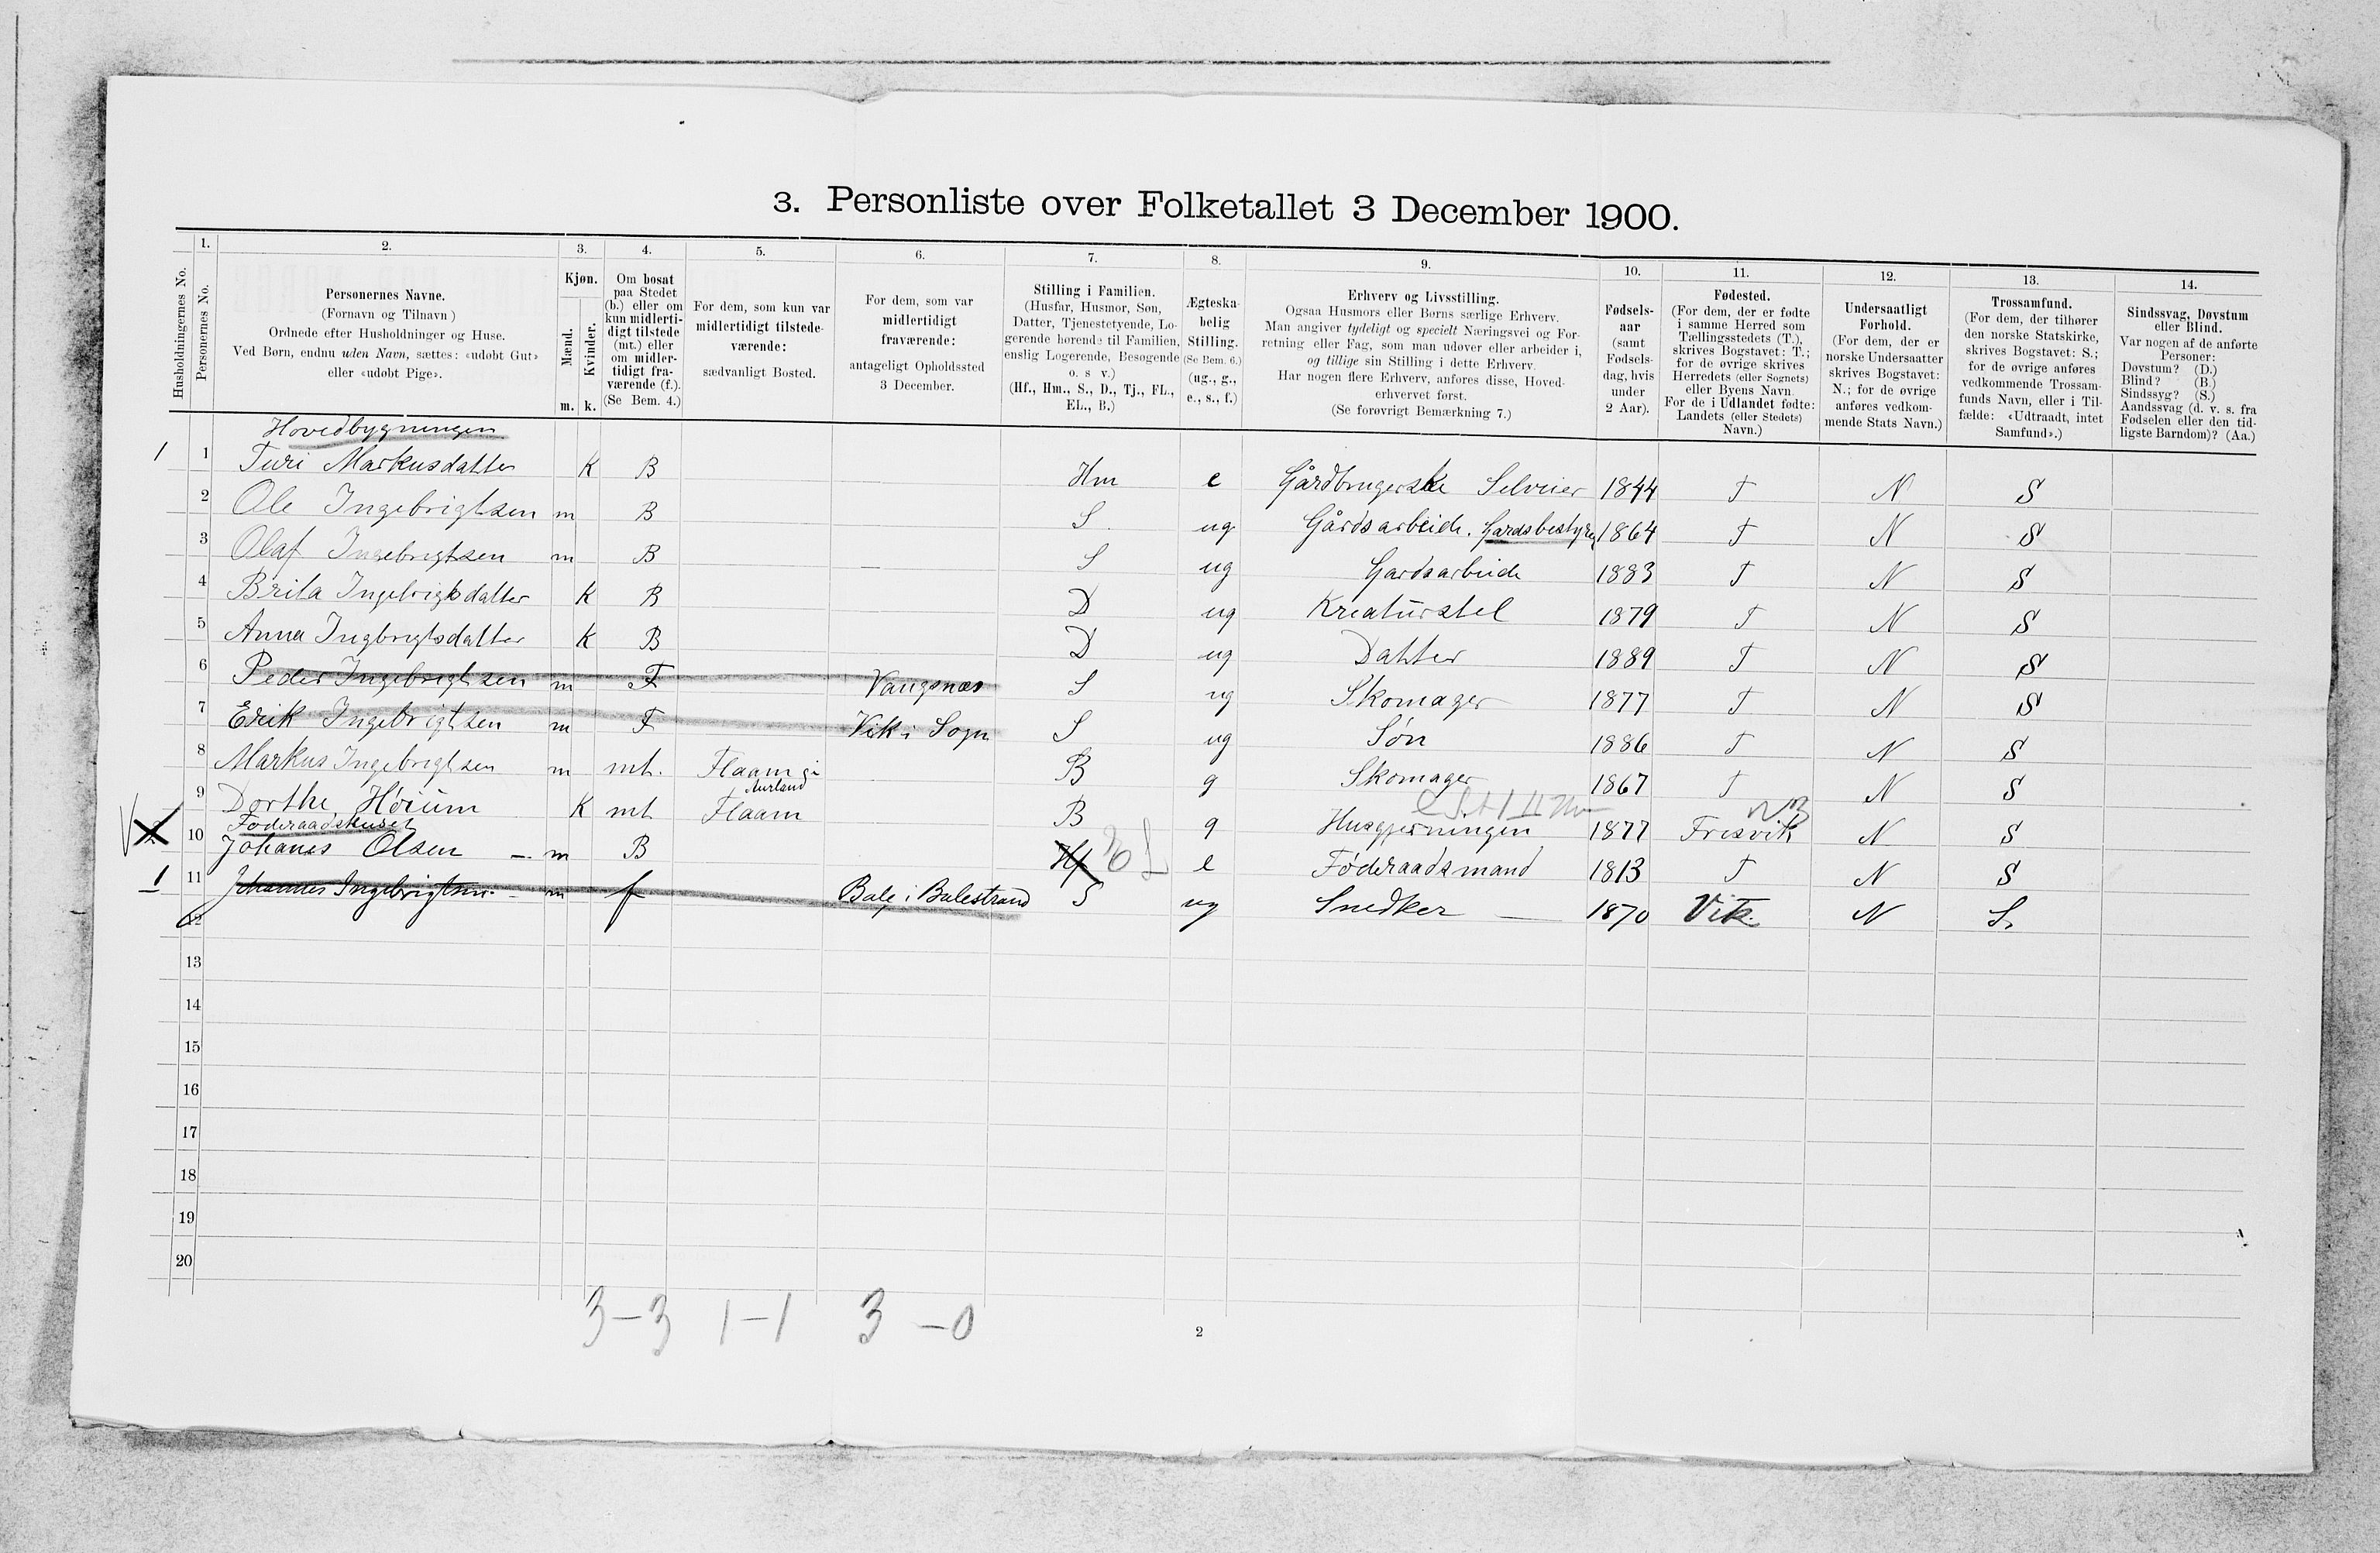 3. Personliste over Folketallet 3 December 1900.
1. 2. 3. 4. 5. 6. 7. 8. 9. 10. 11. 12. 13. 14.
Husholdningernes No.
Personernes No.
Personernes Navne.
(Fornavn og Tilnavn )
Ordnede efter Husholdninger og Huse.
Ved Børn, endnu uden Navn, sættes: «udøbt Gut»
eller «udøbt Pige».
Kjøn.
Mænd.
Kvinder.
m. k.
Om bosat
paa Stedet
(b.) eller om
kun midlerti-
digt tilstede
(mt.) eller
om midler-
tidigt fra-
værende (f.).
(Se Bem. 4.)
For dem, som kun var
midlertidigt tilstede-
værende:
sædvanligt Bosted.
For dem, som var
midlertidigt
fraværende:
antageligt Opholdssted
3 December.
Stilling i Familien.
(Husfar, Husmor, Søn,
Datter, Tjenestetyende, Lo-
gerende hørende til Familien,
enslig Logerende, Besøgende
o. s v.)
(Hf., Hm., S., D., Tj., FL.,
EL., B.)
Ægteska-
belig
Stilling.
(Se Bem. 6.)
(ug., g.,
e., s., f.)
Erhverv og Livsstilling.
Ogsaa Husmors eller Børns særlige Erhverv.
Man angiver tydeligt og specielt Næringsvei og For-
retning eller Fag, som man udøver eller arbeider i,
og tillige sin Stilling i dette Erhverv.
Har nogen flere Erhverv, anføres disse, Hoved-
erhvervet først.
(Se forøvrigt Bemærkning 7.)
Fødsels-
aar
(samt
Fødsels-
dag, hvis
under
2 Aar).
Fødested.
(For dem, der er fødte
i samme Herred som
Tællingsstedets (T.),
skrives Bogstavet: T.;
for de øvrige skrives
Herredets (eller Sognets)
eller Byens Navn.
For de i Udlandet fødte:
Landets (eller Stedets)
Navn.)
Undersaatligt
Forhold.
(For dem, der er
norske Undersaatter
skrives Bogstavet:
N.; for de øvrige
anføres vedkom-
mende Stats Navn.)
Trossamfund.
(For dem, der tilhører
den norske Statskirke,
skrives Bogstavet: S.;
for de øvrige anføres
vedkommende Trossam-
funds Navn, eller i Til-
fælde: «Udtraadt, intet
Samfund».)
Sindssvag, Døvstum
eller Blind.
Var nogen af de anførte
Personer:
Døvstum? (D.)
Blind? (B.)
Sindssyg? (S.)
Aandssvag (d. v. s. fra
Fødselen eller den tid-
ligste Barndom)? (Aa.)
Hovedbygningen
1 1 Turi Markusdatter K B Hm e Gårdbrugerske Selveier 1844 T N S
2 Ole Ingebrigtsen m B S ug Gårdsarbeide. Gardsbestyrer 1864 T N S
3 Olaf Ingebrigtsen m B S ug Gardsarbeide 1883 T N S
4 Brita Ingebrigtsdatter K B D ug Kreaturstel 1879 T N S
5 Anna Ingbrigtsdatter K B D ug Datter 1889 T N S
6 Peder Ingebrigtsen m F Vangsnæs S ug Skomager 1877 T N S
7 Erik Ingebrigtsen m F Vik i Sogn S ug Søn 1886 T N S
8 Markus Ingebrigtsen m mt. Flaam i Aurland B g Skomager 1867 T N S
9 Dorthe Høium K mt Flaam B g Husgjerningen 1877 Fresvik N S
Føderaadshuset
10 Johanes Olsen m B Hf EL e Føderaadsmand 1813 T N S
1 11 Johannes Ingebrigtsen m f Bale i Balestrand S ug Snedker 1870 Vik. N S.
12
13
14
15
16
17
18
19
20
3-3 1-1 3-0
2